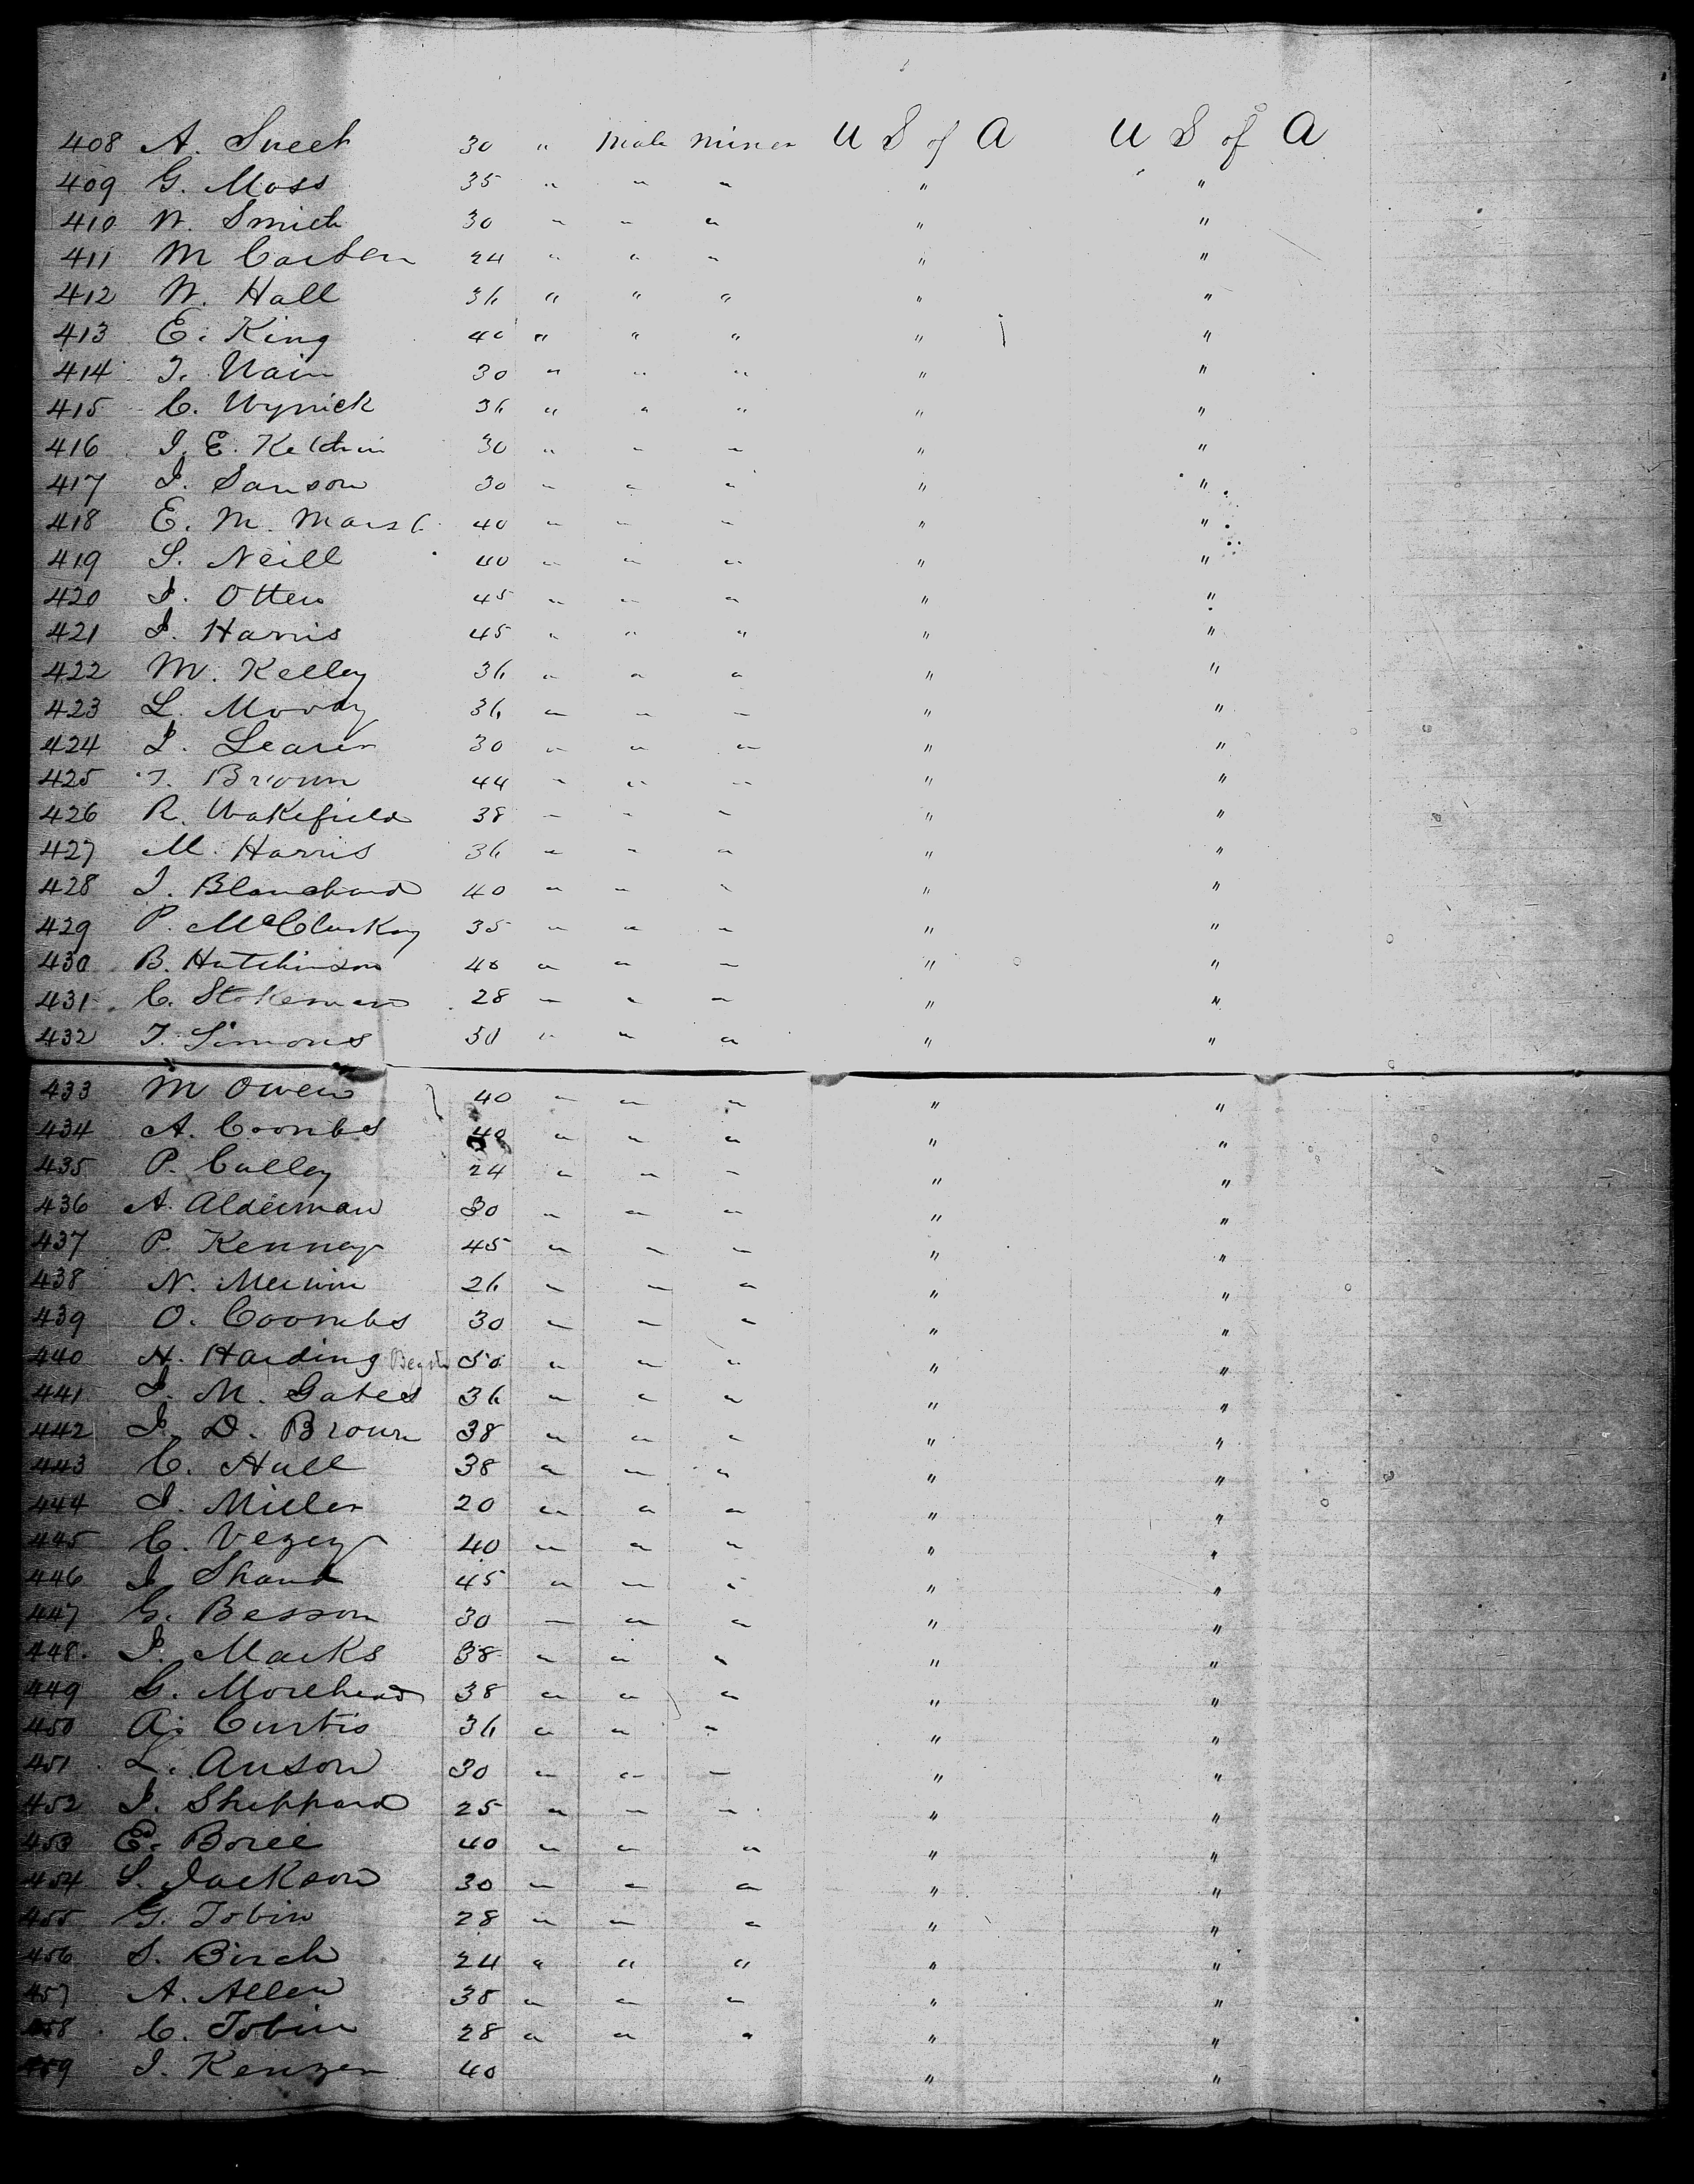 408 A. Sweet 30 " Male Miner U S of A U S of A
409 G. Moss 35 " " " " "
410 W. Smith 30 " " " " "
411 M Carsen 24 " " " " "
412 W. Hall 36 " " " " "
413 E. King 40 " " " " "
414 J. Nain 30 " " " " "
415 C. Wynick 36 " " " " "
416 J. E. Ketchin 30 " " " " "
417 J. Sanson 30 " " " " "
418 E. M. Marsh 40 " " " " "
419 S. Neill 40 " " " " "
420 J. Otten 45 " " " " "
421 J. Harris 45 " " " " "
422 M. Kelley 36 " " " " "
423 L. Moody 36 " " " " "
424 J. Learer 30 " " " " "
425 T. Brown 44 " " " " "
426 R. Wakefield 38 " " " " "
427 M. Harris 36 " " " " "
428 J. Blanchard 40 " " " " "
429 P. McCluskey 35 " " " " "
430 B. Hutchinson 40 " " " " "
431 C. Stokeman 28 " " " " "
432 T. Simons 50 " " " " "
433 M Owen 40 " " " " "
434 A. Coombs 40 " " " " "
435 P. Culley 24 " " " " "
436 A. Alderman 30 " " " " "
437 P. Kenney 45 " " " " "
438 N. Merwin 26 " " " " "
439 O. Coombs 30 " " " " "
440 H. Harding 50 " " " " "
441 J. M. Gates 36 " " " " "
442 J. D. Brown 38 " " " " "
443 C. Hull 38 " " " " "
444 J. Miller 20 " " " " "
445 C. Vezey 40 " " " " "
446 J Shand 45 " " " " "
447 G. Besson 30 " " " " "
448. J. Marks 38 " " " " "
449 G. Morehead 38 " " " " "
450 A. Curtis 36 " " " " "
451 L. Anson 30 " " " " "
452 J. Sheppard 25 " " " " "
453 E. Boree 40 " " " " "
454 S. Jackson 30 " " " " "
455 G. Tobin 28 " " " " "
456 S. Birch 24 " " " " "
457 A. Allen 38 " " " " "
458 C. Tobin 28 " " " " "
459 J. Kenzer 40 " "